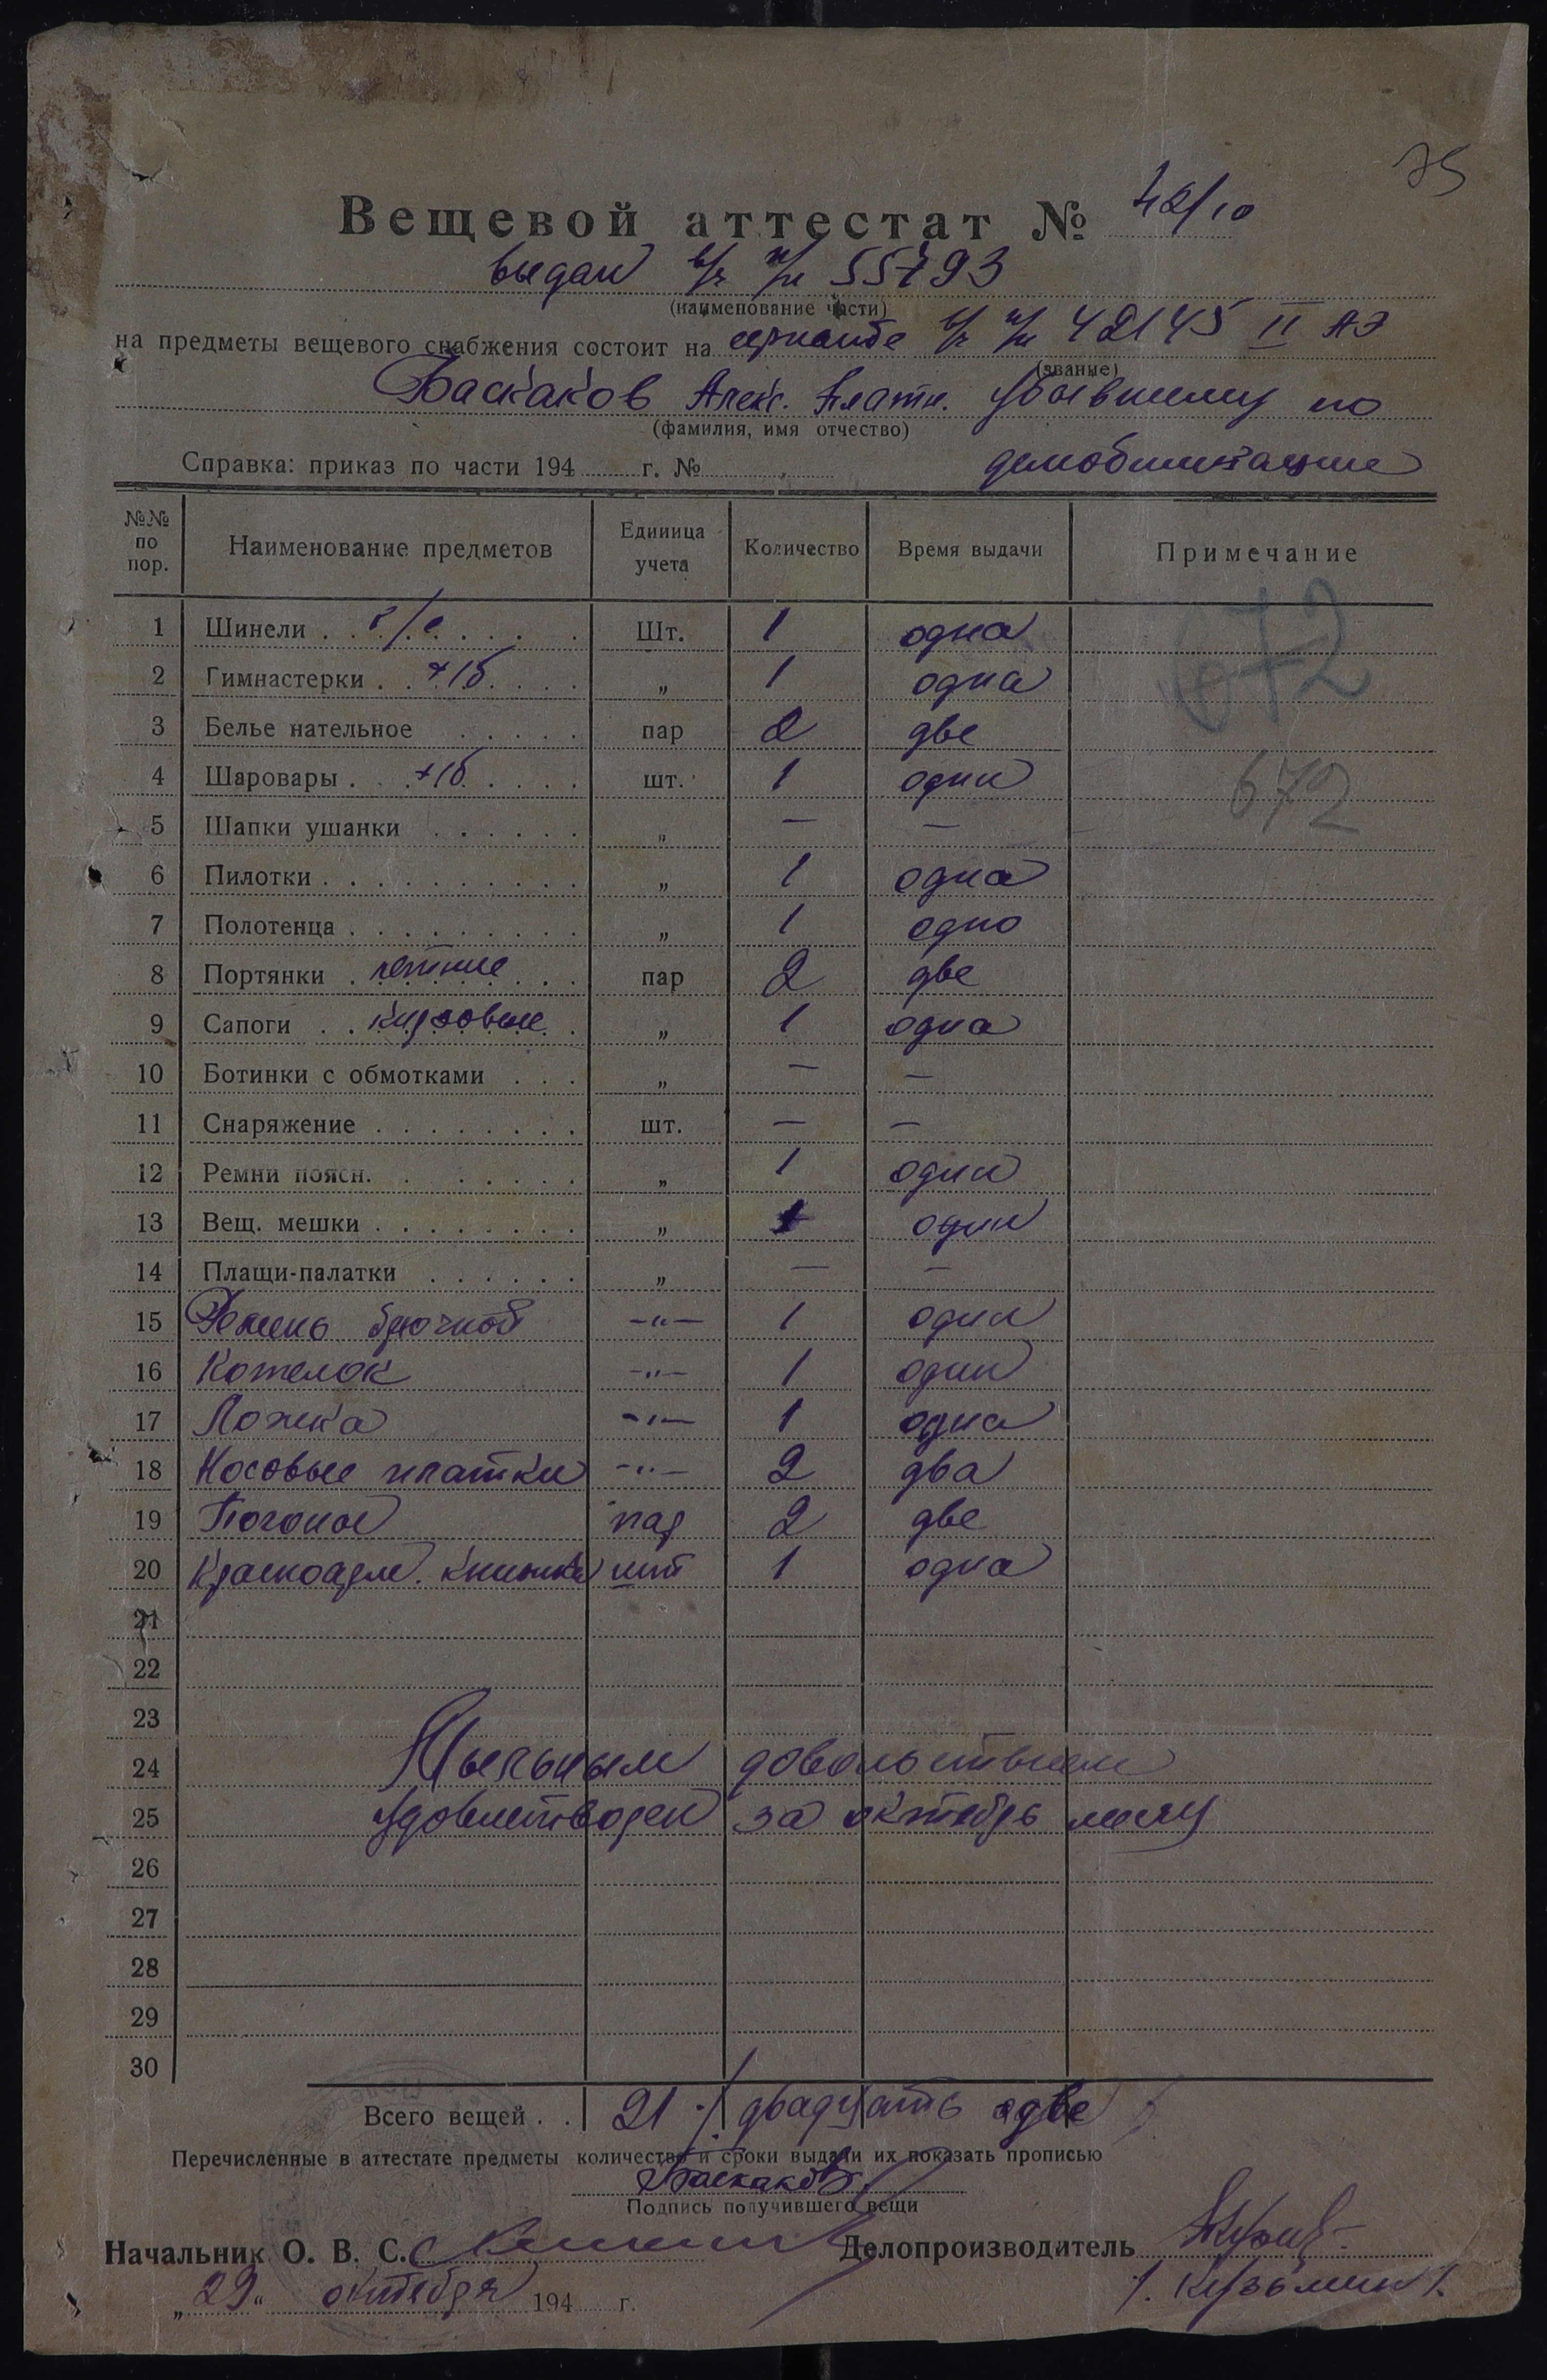 75
Вещевой аттестат № 42/10
выдан в/ч п/п 55793
(наименование части)
на предметы вещевого снабжения состоит на сержанте в/ч п/п 42145 II АЭ
(звание)
Баскаков Алекс. Плат. убывшему по
(фамилия, имя отчество)
Справка: приказ по части 194 г. № демобилизации
№№ по пор. Наименование предметов Единица учета Количество Время выдачи Примечание
1 Шинели Шт. 1 одна 672
2 Гимнастерки х/б „ 1 одна
3 Белье нательное пар 2 две
4 Шаровары х/б шт. 1 один 672
5 Шапки ушанки „ — —
6 Пилотки „ 1 одна
7 Полотенца „ 1 одно
8 Портянки летние пар 2 две
9 Сапоги кирзовые „ 1 одна
10 Ботинки с обмотками „ — —
11 Снаряжение шт. — —
12 Ремни поясн. „ 1 один
13 Вещ. мешки „ 1 один
14 Плащи-палатки „ — —
15 Ремень брючной -"- 1 один
16 Котелок -"- 1 один
17 Ложка -"- 1 одна
18 Носовые платки -"- 2 два
19 Погоны пар 2 две
20 Красноарм. книжка шт 1 одна
21
22
23
24 Мыльным довольствием
25 удовлетворен за октябрь месяц
26
27
28
29
30
Всего вещей 21 /двадцать одве/
Перечисленные в аттестате предметы количество и сроки выдачи их показать прописью
Баскаков
Подпись получившего вещи
Начальник О. В. С. Делопроизводитель
„29“ октября 194 г. /. Кузьмин /.